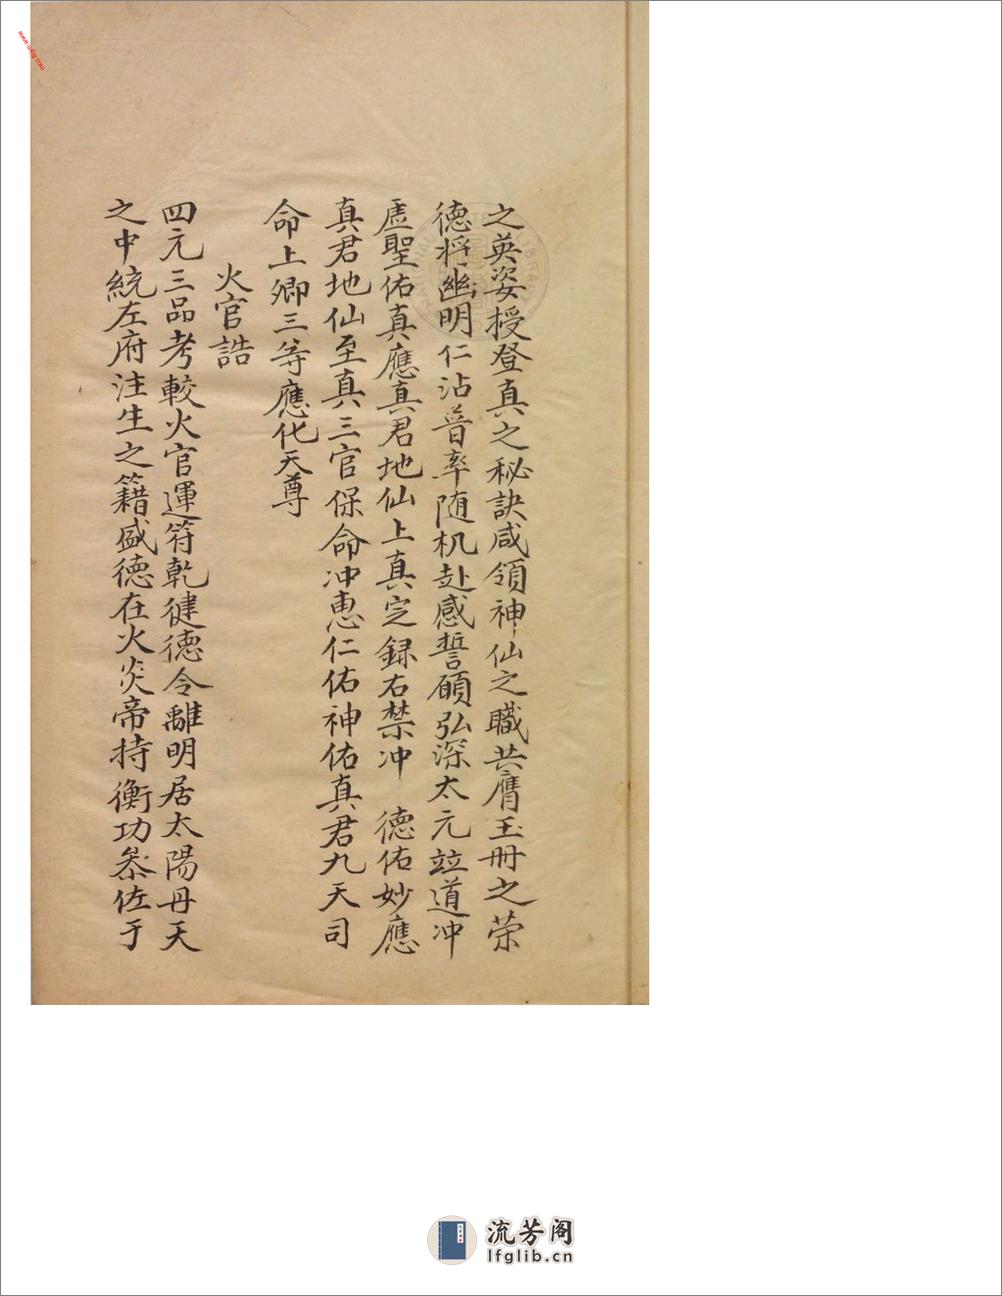 之英姿授登真之秘訣咸領神仙之職共膺玉册之荣
德将幽明仁沾普率随机赴感誓願弘深太元竝道冲
虛聖佑真應真君地仙上真定録右禁冲 德佑妙應
真君地仙至真三官保命冲惠仁佑神佑真君九天司
命上卿三等應化天尊
火官誥
四元三品考較火官運符乾健德令離明居太陽丹天
之中統左府注生之籍盛德在火炎帝持衡功叅佐于
流芳阁
lfglib.cn